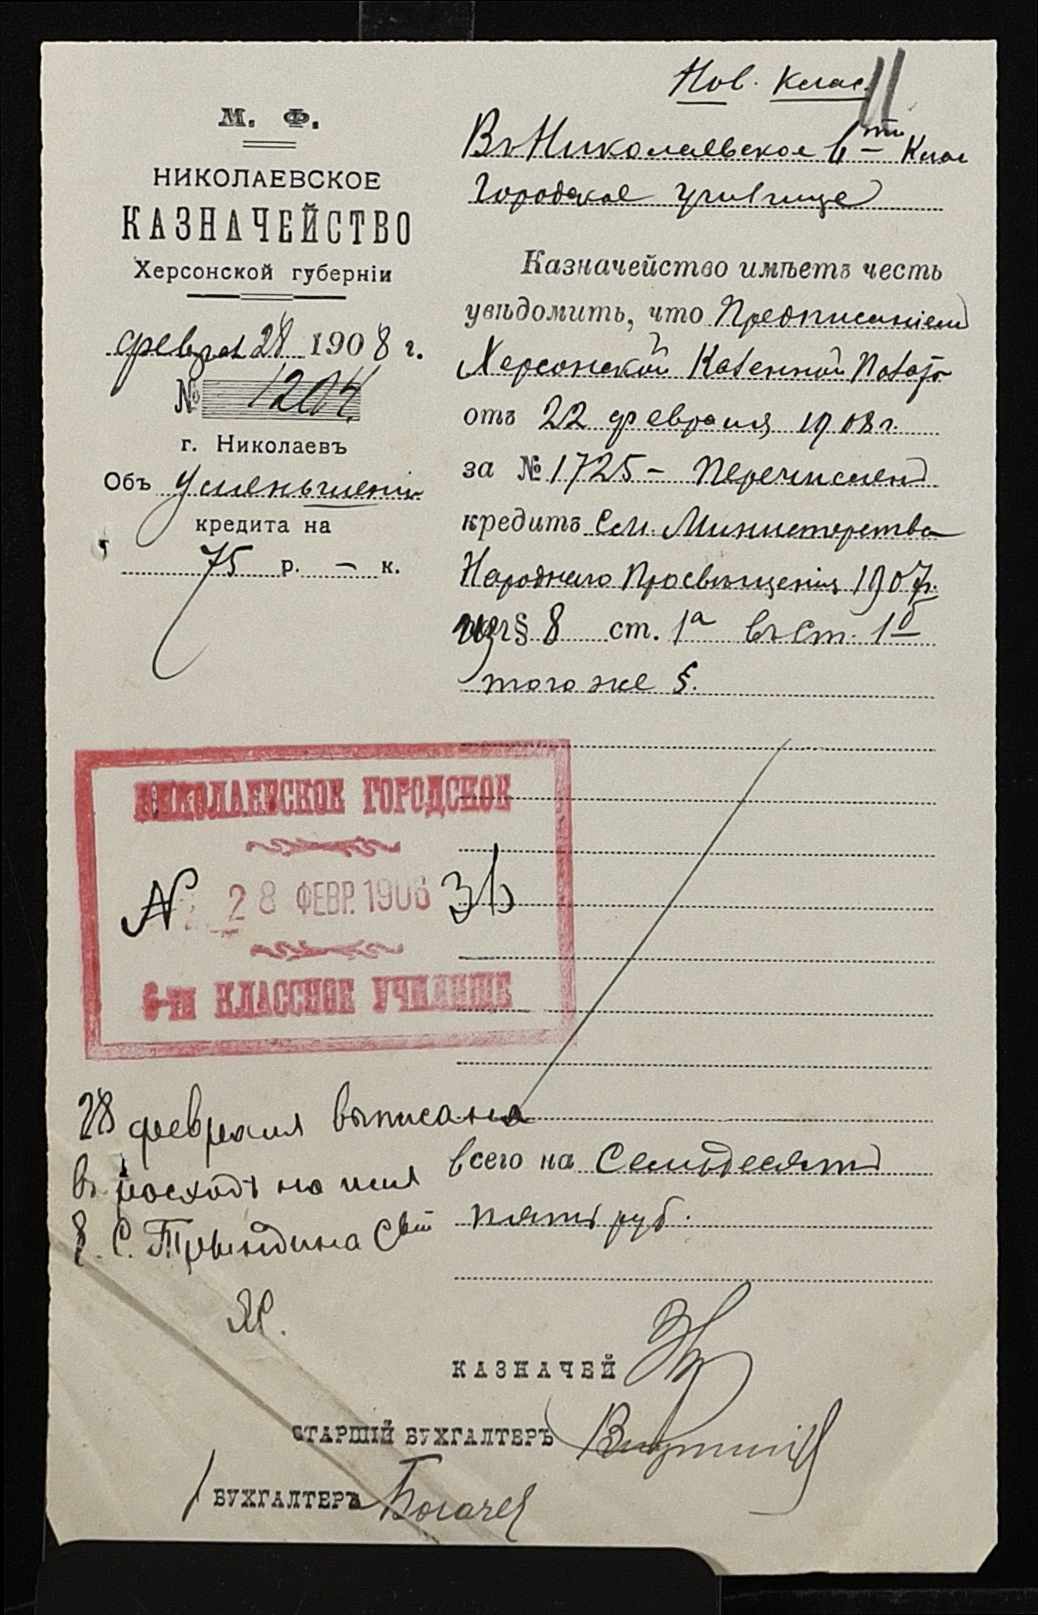 Нов. Клас.
М. Ф.
НИКОЛАЕВСКОЕ
КАЗНАЧЕЙСТВО
Херсонской губерніи
феврал 28 1908 г.
№ 1204.
г. Николаевъ
Объ уменьшеніи
кредита на
75 р. – к.
Въ Николаевское 6-ти Клас
Городское училище
Казначейство имѣетъ честь
увѣдомить, что Предписаніемъ
Херсонской Казенной Палаты
отъ 22 февраля 1908 г.
за № 1725 – Перечисленъ
кредитъ См. Министерства
Народнаго Просвѣщенія 1907 г.
изъ § 8 ст. 1а въ ст. 1б
того же §.
НИКОЛАЕВСКОЕ ГОРОДСКОЕ
№ 28 ФЕВР. 1906 36
6-ти КЛАССНОЕ УЧИЛИЩЕ
28 февраля выписана
въ расходъ на имя
С. Трындина
всего на Семьдесятъ
пять руб.
КАЗНАЧЕЙ
СТАРШІЙ БУХГАЛТЕРЪ
БУХГАЛТЕРЪ Богачев